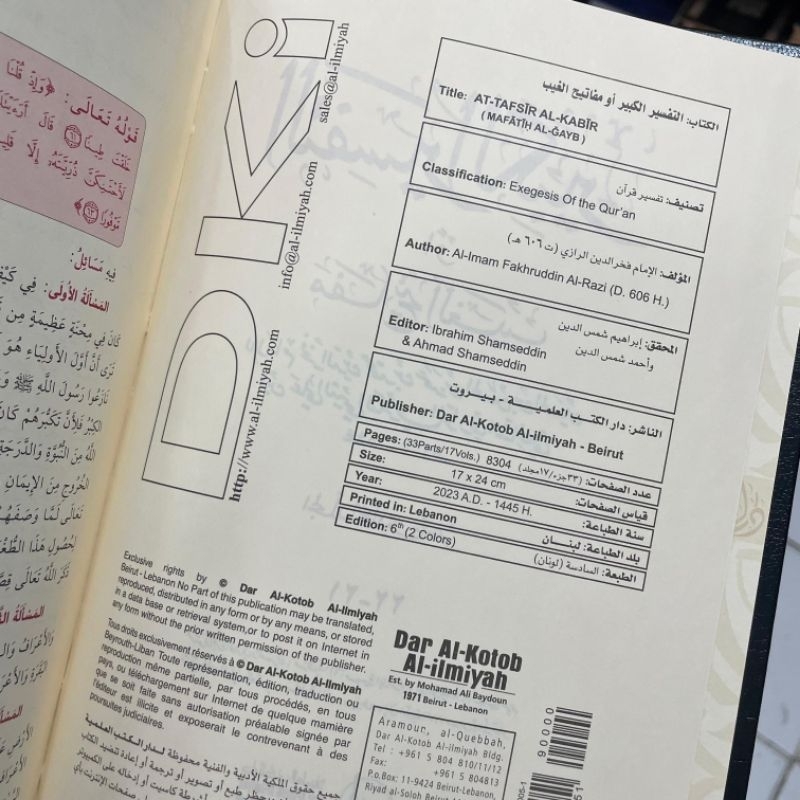 قَوْلُهُ تَعَالَى: ﴿وَإِذْ قُلْنَا
فِيهِ مَسَائِلُ:
المَسْأَلَةُ الأُولَى: فِي
كَانَ فِي مِحْنَةٍ عَظِيمَةٍ مِنْ
أَنَّ أَوَّلَ الأَوْلِيَاءِ هُوَ
نَازَعُوا رَسُولَ اللَّهِ ﷺ
الكِبْرُ فَلِأَنَّ تَكَبُّرَهُمْ كَانَ
اللَّهُ مِنَ النُّبُوَّةِ وَالدَّرَجَةِ
الخُرُوجَ مِنَ الإِيمَانِ
تَعَالَى لَمَّا وَصَفَهُمْ
لِحُصُولِ هَذَا
ذَكَرَ اللَّهُ تَعَالَى
DKi
http://www.al-ilmiyah.com
info@al-ilmiyah.com
sales@al-ilmiyah.com
الكتاب: التفسير الكبير أو مفاتيح الغيب
Title: AT-TAFSĪR AL-KABĪR
( MAFĀTĪḤ AL-ĠAYB )
تصنيف: تفسير قرآن
Classification: Exegesis Of the Qur'an
المؤلف: الإمام فخر الدين الرازي (ت ٦٠٦ هـ)
Author: Al-Imam Fakhruddin Al-Razi (D. 606 H.)
المحقق: إبراهيم شمس الدين
وأحمد شمس الدين
Editor: Ibrahim Shamseddin
& Ahmad Shamseddin
الناشر: دار الكتب العلمية - بيروت
Publisher: Dar Al-Kotob Al-ilmiyah - Beirut
Pages: (33Parts/17Vols.) 8304 عدد الصفحات: (٣٣جزء/١٧مجلد)
Size: 17 x 24 cm قياس الصفحات:
Year: 2023 A.D. - 1445 H. سنة الطباعة:
Printed in: Lebanon بلد الطباعة: لبنان
Edition: 6th (2 Colors) الطبعة: السادسة (لونان)
Exclusive rights by © Dar Al-Kotob Al-Ilmiyah
Beirut - Lebanon No Part of this publication may be translated,
reproduced, distributed in any form or by any means, or stored
in a data base or retrieval system,or to post it on Internet in
any form without the prior written permission of the publisher.
Tous droits exclusivement réservés à © Dar Al-Kotob Al-Ilmiyah
Beyrouth-Liban Toute représentation, édition, traduction ou
reproduction même partielle, par tous procédés, en tous
pays, ou téléchargement sur Internet de quelque manière
que se soit faite sans autorisation préalable signée par
l'éditeur est illicite et exposerait le contrevenant à des
poursuites judiciaires.
جميع حقوق الملكية الأدبية والفنية محفوظة لـدار الكتب العلمية
Dar Al-Kotob
Al-ilmiyah
Est. by Mohamad Ali Baydoun
1971 Beirut - Lebanon
Aramour, al-Quebbah,
Dar Al-Kotob Al-ilmiyah Bldg.
Tel : +961 5 804 810/11/12
Fax: +961 5 804813
P.o.Box: 11-9424 Beirut-Lebanon,
Riyad al-Soloh Beirut
90000